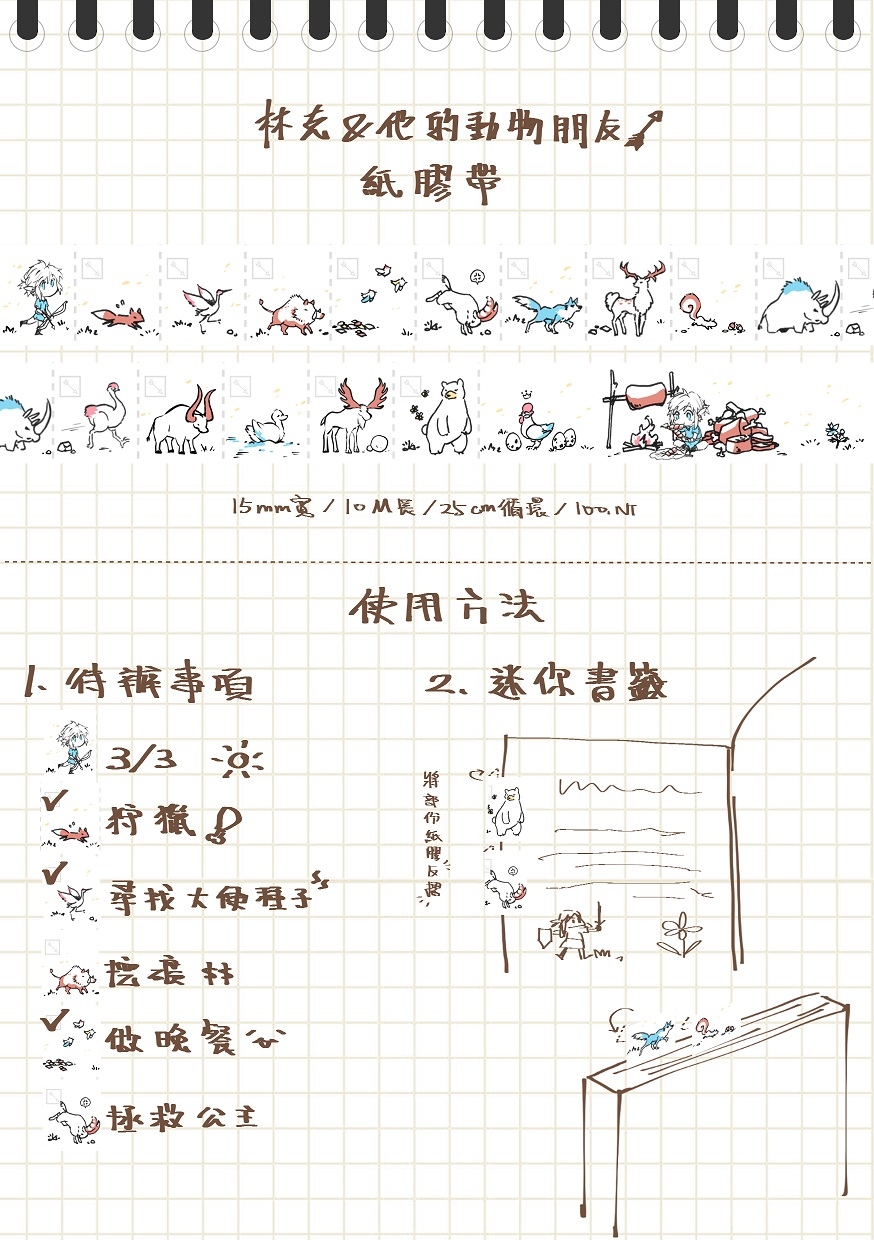 林克&他的動物朋友
紙膠帶
15mm寬/10M長/25cm循環/100.NT
使用方法
1. 待辦事項
3/3
狩獵
尋找大便種子
挖礦 林
做晚餐
拯救公主
2. 迷你書籤
將部份紙膠反摺